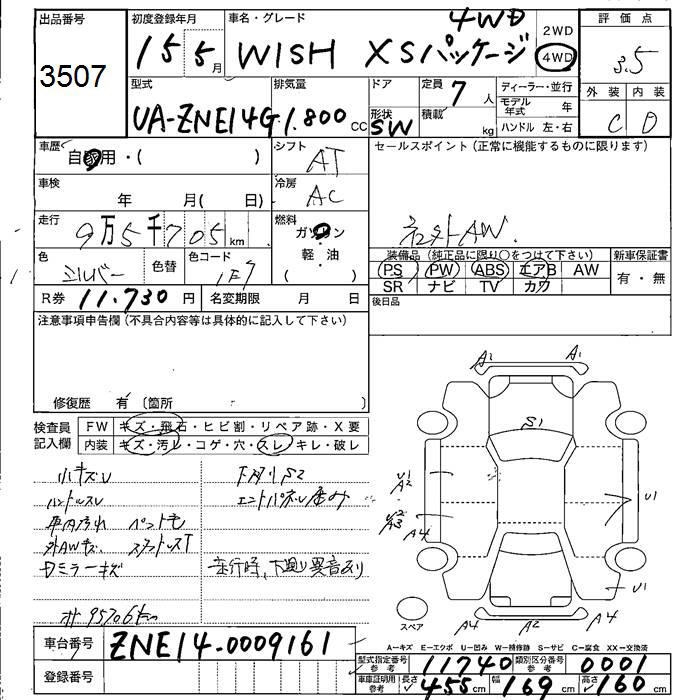 出品番号
3507
初度登録年月
15 5月
車名・グレード
4WD
WISH XSパッケージ
2WD
4WD
評価点
3.5
外装 内装
C D
型式
UA-ZNE14G
排気量
1.800 CC
ドア
形状
SW
定員 7 人
積載 kg
ディーラー・並行
モデル年式 年
ハンドル 左・右
車歴
自家用・( )
シフト
AT
セールスポイント(正常に機能するものに限ります)
社外AW.
車検
年 月( 日)
冷房
AC
走行
9万5千705km
燃料
ガソリン
軽・油
色
シルバー
色替
色コード
1F7
装備品(純正品に限り○をつけて下さい)
PS PW ABS エアB AW
SR ナビ TV カワ
新車保証書
有・無
R券 11.730 円
名変期限 月 日
後日品
注意事項申告欄(不具合内容等は具体的に記入して下さい)
修復歴 有 〔箇所
検査員記入欄
FW キズ・飛石・ヒビ割・リペア跡・X要
内装 キズ・汚レ・コゲ・穴・スレ・キレ・破レ
小キズU
ハンドルスレ
車内汚れ ペット毛
外AWキズ スタッドレスT
Dミラーキズ
下廻りS2
エンドパネル歪み
走行時、下廻り異音あり
95706km
A1 A1
S1
U1
A2
U2
A3
A4
U1
U1
A4 A2 A4
スペア
A=キズ E=エクボ U=凹み W=補修跡 S=サビ C=腐食 XX=交換済
車台番号 ZNE14-0009161
登録番号
型式指定番号参考 11740
類別区分番号参考 0001
車車証明用参考 長さ 455cm 幅 169cm 高さ 160cm